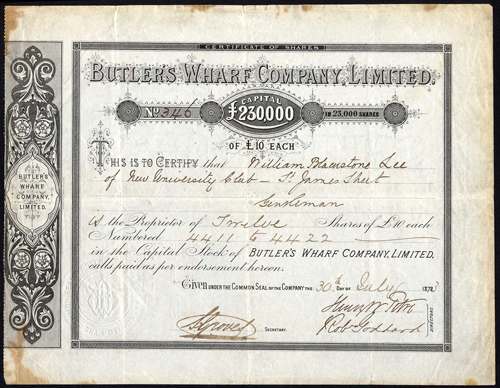 CERTIFICATE OF SHARES
BUTLER'S WHARF COMPANY, LIMITED.
CAPITAL
No. 346 £230,000 IN 23,000 SHARES
OF £10 EACH
THIS IS TO CERTIFY that William Lee
of New University Club - St James Street
Gentleman
is the Proprietor of Twelve Shares of £10 each
Numbered 4411 to 4422
in the Capital Stock of BUTLER'S WHARF COMPANY, LIMITED,
calls paid as per endorsement hereon.
Given UNDER THE COMMON SEAL OF THE COMPANY THIS 30th DAY OF July 1873
SECRETARY.
Rob Goddard
DIRECTORS
BUTLER'S
WHARF
COMPANY,
LIMITED.